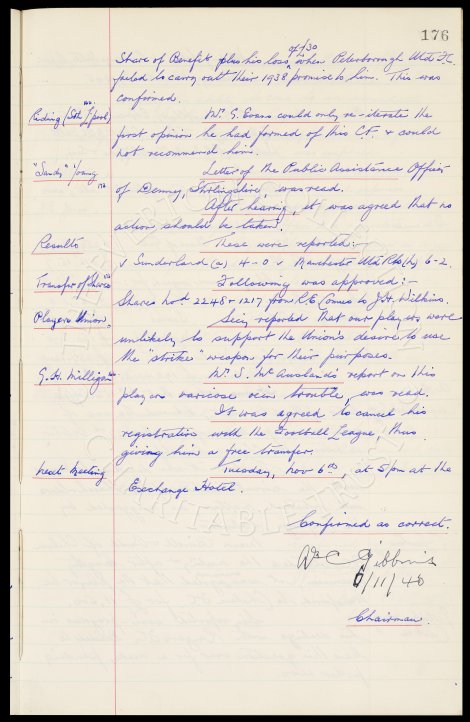 176
of £30
Share of Benefit plus his loss, when Peterborough Utd F.C.
failed to carry out their 1938 promise to him. This was
confirmed.
Riding (Sth L'pool) Mr. G. Evans could only re-iterate the
first opinion he had formed of this C.F. & could
not recommend him.
"Sandy" Young Letter of the Public Assistance Officer
of Denny, Stirlingshire, was read.
After hearing, it was agreed that no
action should be taken.
Results These were reported:-
v Sunderland (a) 4-0 v Manchester Utd Res (h) 6-2.
Transfer of Shares Following was approved:-
Shares Nos. 2248 & 1217 from R.E. to J.H. Wilkins.
Players Union. Being reported that our players were
unlikely to support the Union's desire to use
the "strike" weapon for their purposes.
G. H. Milligan Mr. S. McAusland's report on this
players varicose vein trouble, was read.
It was agreed to cancel his
registration with the Football League, thus
giving him a free transfer.
Next Meeting Tuesday, Nov 6th, at 5pm at the
Exchange Hotel.
Confirmed as correct.
Wm C Gibbins
6/11/45
Chairman.